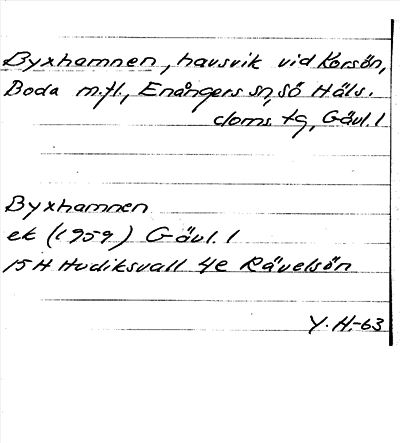 Byxhamnen, havsvik vid Korsön,
Boda m.fl., Enångers sn, SÖ Häls.
doms. tg, Gävl. l
Byxhamnen
ek (1959) Gävl. l
15H Hudiksvall 4e Rävelsön
Y. H.-63